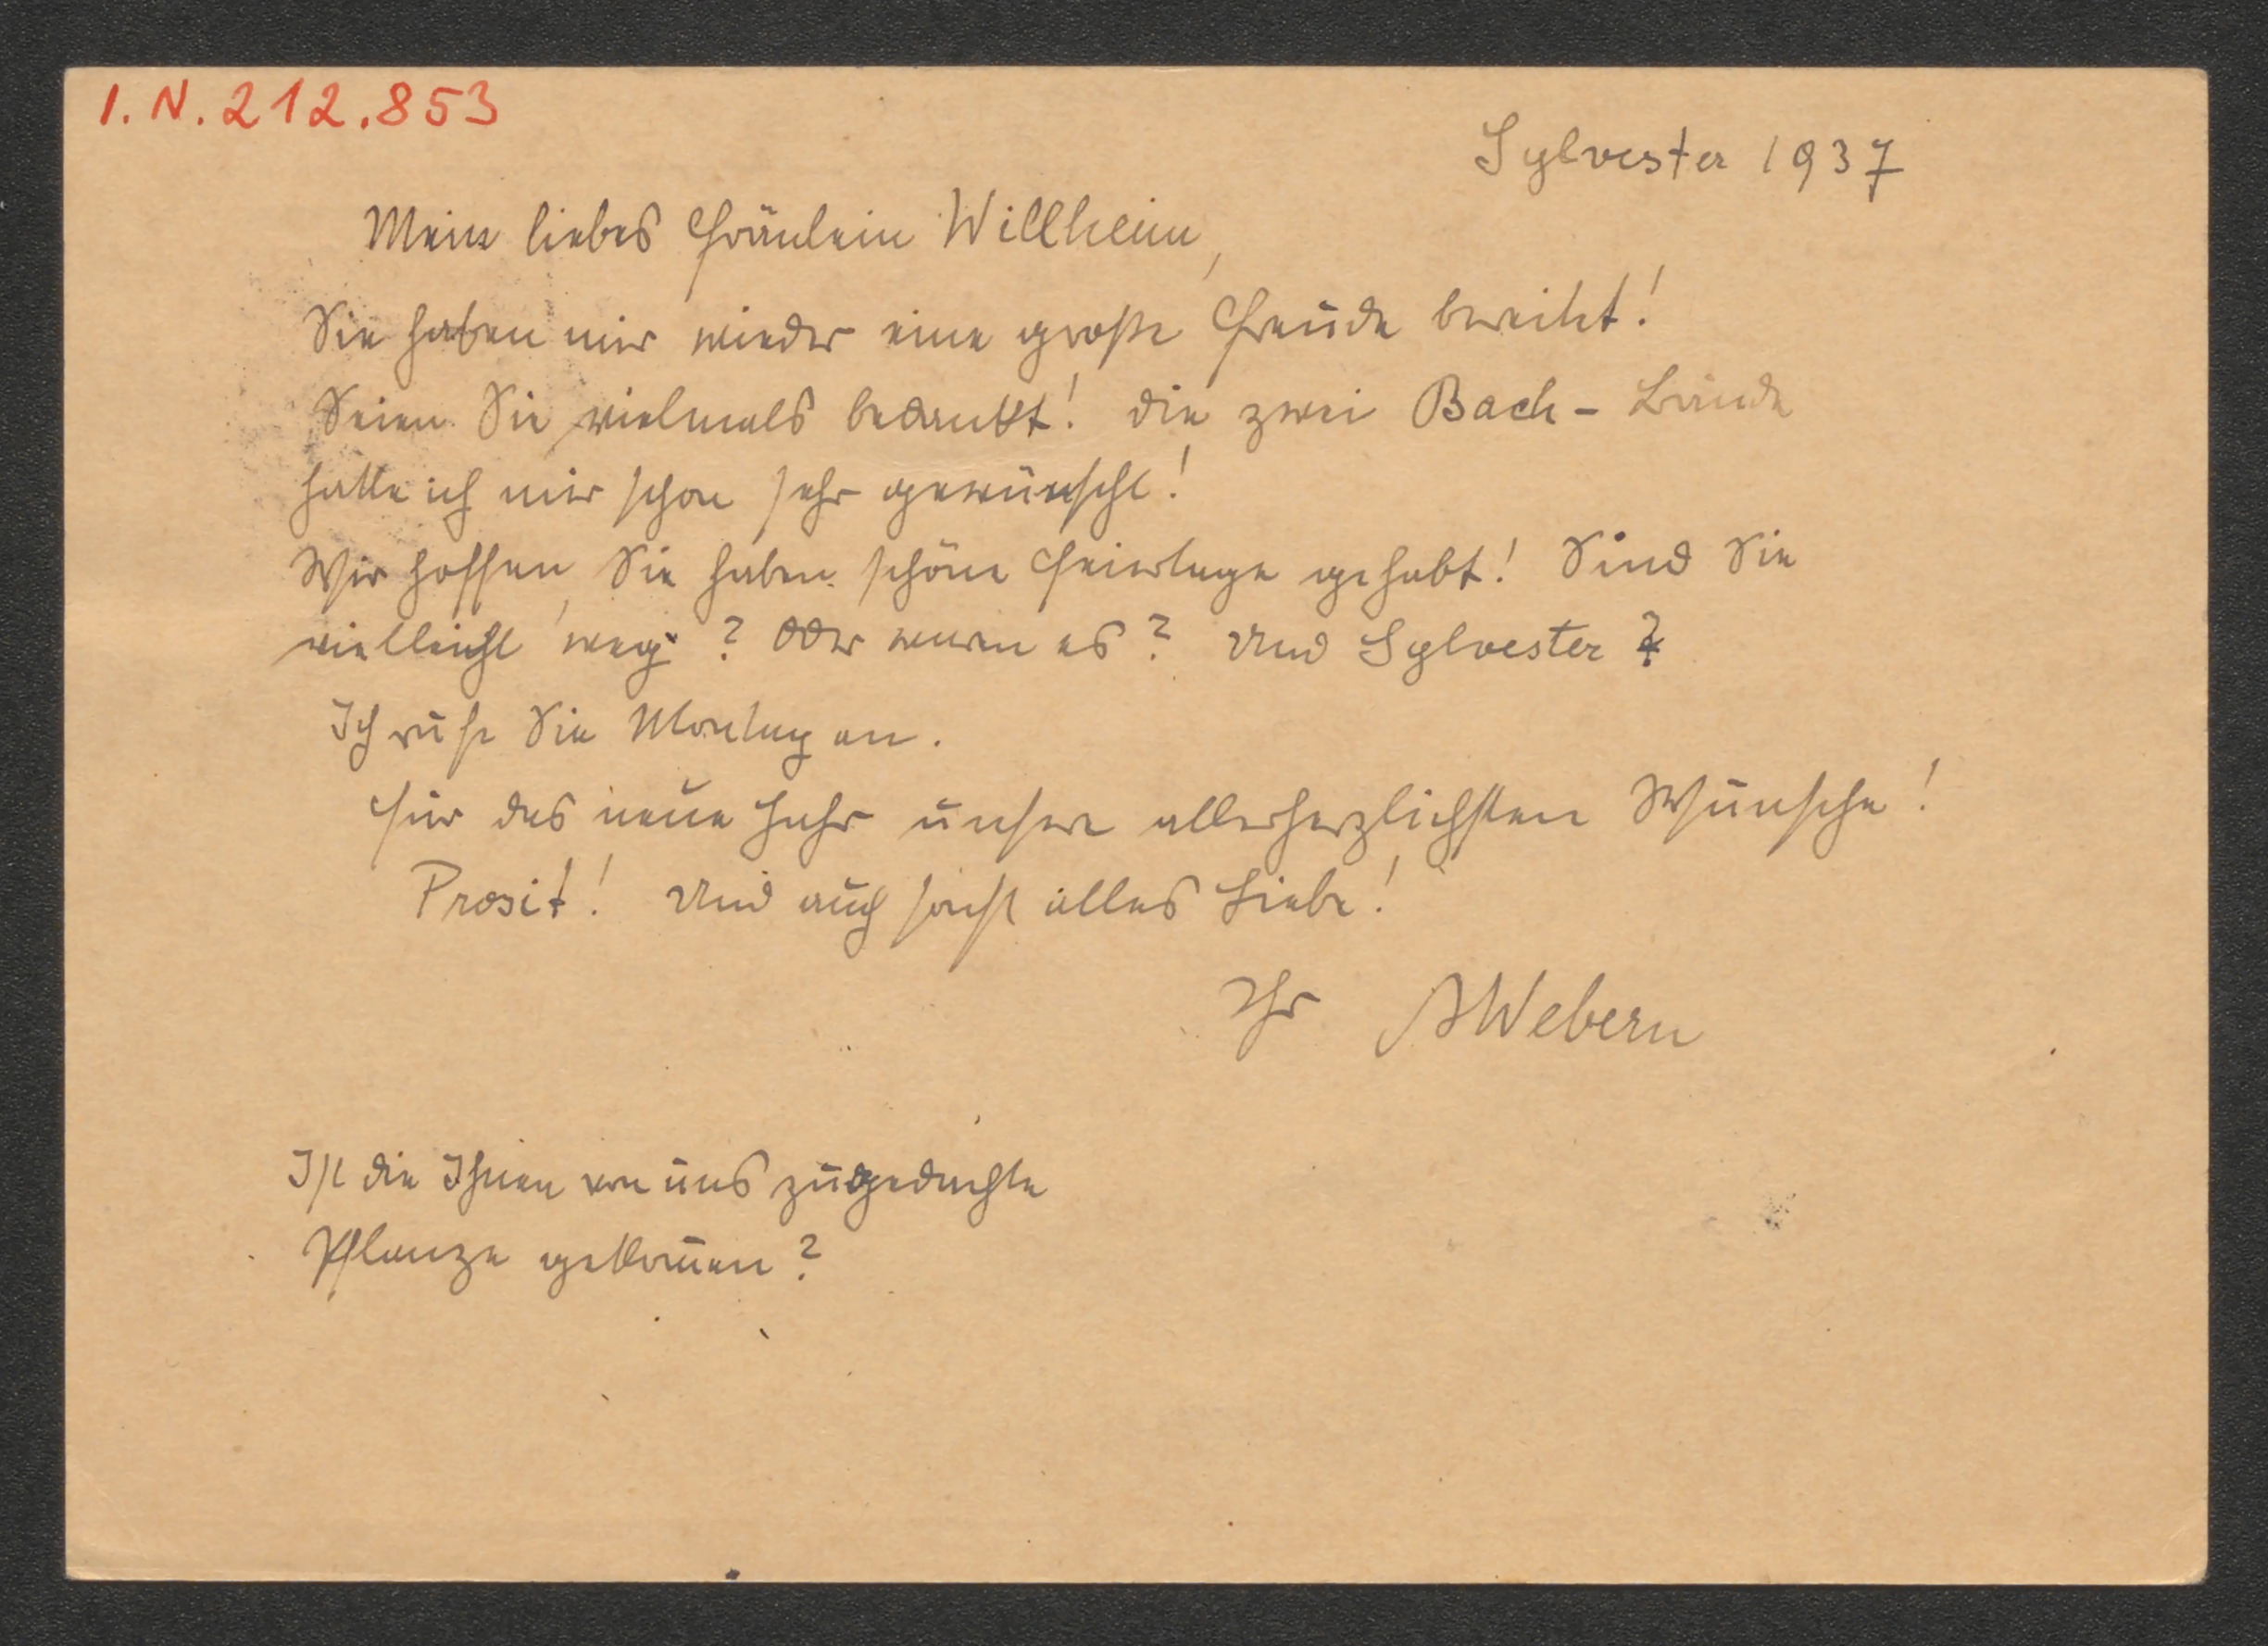 I.N. 212.853
Sylvester 1937
Mein liebes Fräulein Willheim,
Sie haben mir wieder eine große Freude bereitet!
Seien Sie vielmals bedankt! Die zwei Bach - Bände
hatte ich mir schon sehr gewünscht!
Wir hoffen, Sie haben schöne Feiertage gehabt! Sind Sie
vielleicht weg? Oder waren es? Und Sylvester?
Ich rufe Sie Montag an.
Für das neue Jahr unsere allerherzlichsten Wünsche!
Prosit! Und auch sonst alles Liebe!
Ihr AWebern
Ist die Ihnen von uns zugedachte
Pflanze gekom̅en?